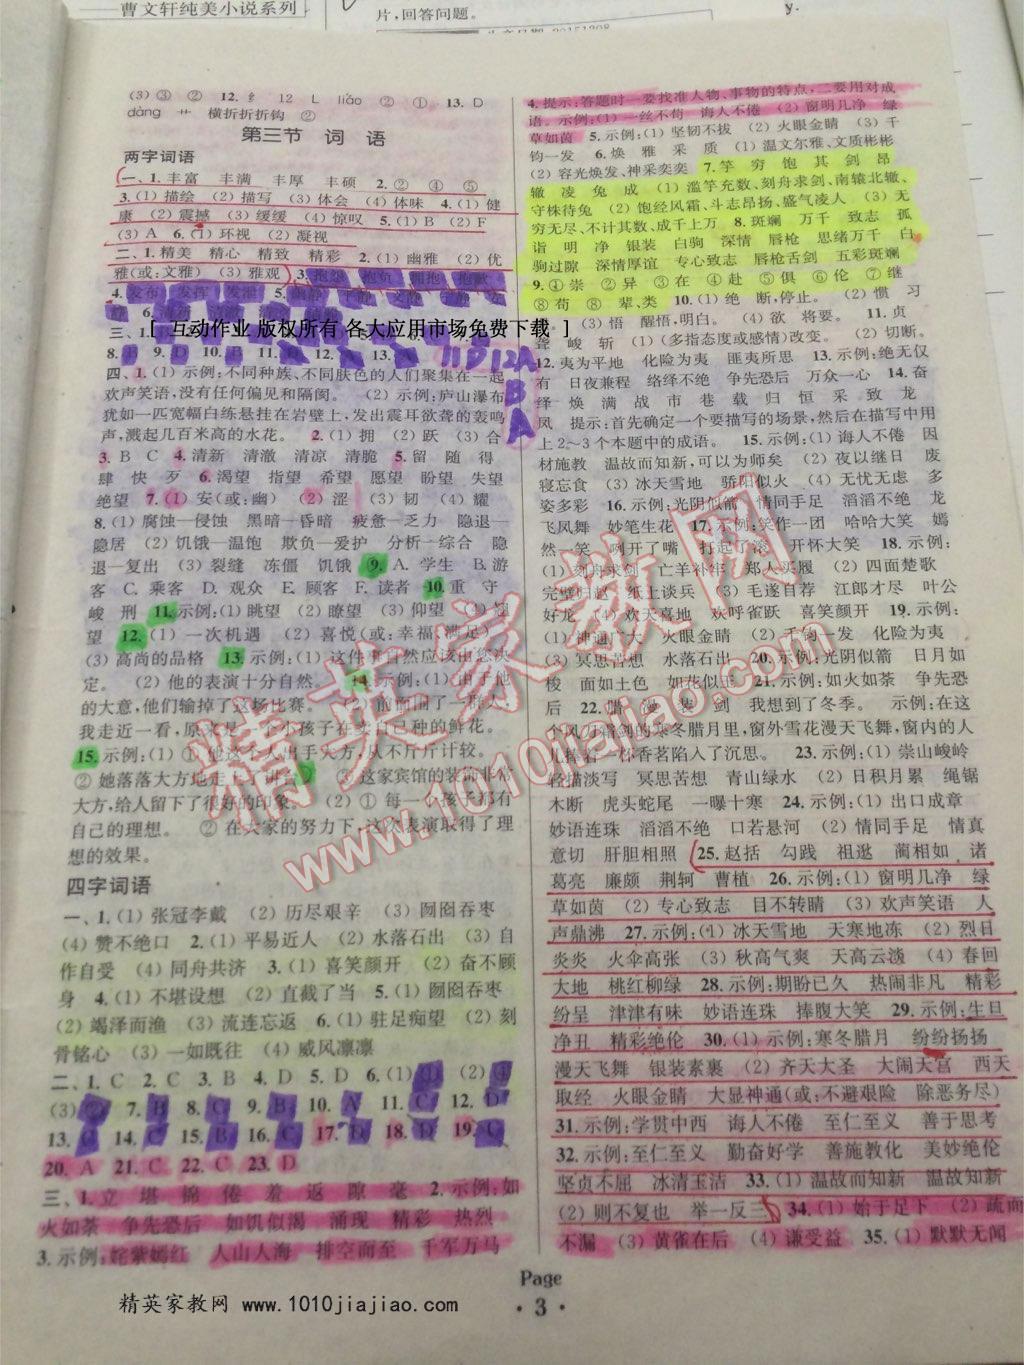 曹文轩纯美小说系列
片，回答问题。
y.
(3) ③ ② 12. 纟 12 L liáo ② ① 13. D
dàng 艹 横折折折钩 ②
第三节 词 语
两字词语
一、1. 丰富 丰满 丰厚 丰硕 2. ② ④ ⑤
3. (1) 描绘 (2) 描写 (3) 体会 (4) 体味 4. (1) 健
康 (2) 震撼 (3) 缓缓 (4) 惊叹 5. (1) B (2) F
(3) A 6. (1) 环视 (2) 凝视
二、1. 精美 精心 精致 精彩 2. (1) 幽雅 (2) 优
雅(或:文雅) (3) 雅观 3. 抱怨 抱负 拥抱 抱歉
4. 发布 发挥 发泄 5.
[ 互动作业 版权所有 各大应用市场免费下载 ]
11D 12A
B
A
四、1. (1) 示例:不同种族、不同肤色的人们聚集在一起
欢声笑语,没有任何偏见和隔阂。 (2) 示例:庐山瀑布
犹如一匹宽幅白练悬挂在岩壁上,发出震耳欲聋的轰鸣
声,溅起几百米高的水花。 2. (1) 拥 (2) 跃 (3) 合
3. B C 4. 清新 清澈 清凉 清脆 5. 留 随 得
肆 快 歹 6. 渴望 指望 希望 愿望 盼望 失望
绝望 7. (1) 安(或:幽) (2) 涩 (3) 韧 (4) 耀
8. (1) 腐蚀—侵蚀 黑暗—昏暗 疲惫—乏力 隐退—
隐居 (2) 饥饿—温饱 欺负—爱护 分析—综合 隐
退—复出 (3) 裂缝 冻僵 饥饿 9. A. 学生 B. 游
客 C. 乘客 D. 观众 E. 顾客 F. 读者 10. 重 守
峻 刑 11. 示例:(1) 眺望 (2) 瞭望 (3) 仰望 (4)
望 12. (1) 一次机遇 (2) 喜悦(或:幸福、满足)
(3) 高尚的品格 13. 示例:(1) 这件事自然应该由您决
定。 (2) 他的表演十分自然。 14. 示例:(1) 由于他
的大意,他们输掉了这场比赛。 (2) 前面围了一群人,
我走近一看,原来是一个小孩子在卖自己种的鲜花。
15. 示例:(1) ① 他这个人出手大方,从不斤斤计较。
② 她落落大方地走上了讲台。 ③ 这家宾馆的装饰非常
大方,给人留下了很好的印象。 (2) ① 每一个孩子都有
自己的理想。 ② 在大家的努力下,这次表演取得了理
想的效果。
四字词语
一、1. (1) 张冠李戴 (2) 历尽艰辛 (3) 囫囵吞枣
(4) 赞不绝口 2. (1) 平易近人 (2) 水落石出 (3) 自
作自受 (4) 同舟共济 3. (1) 喜笑颜开 (2) 奋不顾
身 4. (1) 不堪设想 (2) 直截了当 5. (1) 囫囵吞枣
(2) 竭泽而渔 (3) 流连忘返 6. (1) 驻足痴望 (2) 刻
骨铭心 (3) 一如既往 (4) 威风凛凛
二、1. C 2. C 3. C 4. D 5. D 6. (1) ① (2) ①
(3) 7. B 8. C 9. B 10. A 11. C 12. D
13. C 14. C 15. B 16. C 17. D 18. D 19. C
20. A 21. C 22. C 23. D
三、1. 立 堪 掷 倦 羞 返 隙 毫 2. 示例:如
火如荼 争先恐后 如饥似渴 涌现 精彩 热烈
3. 示例:姹紫嫣红 人山人海 排空而至 千军万马
4. 提示:答题时一要找准人物、事物的特点,二要用对成
语。示例:(1) 一丝不苟 诲人不倦 (2) 窗明几净 绿
草如茵 5. 示例:(1) 坚韧不拔 (2) 火眼金睛 (3) 千
钧一发 6. 焕 雅 采 质 (1) 温文尔雅、文质彬彬
(2) 容光焕发、神采奕奕 7. 竽 穷 饱 其 剑 昂
辙 凌 兔 成 (1) 滥竽充数、刻舟求剑、南辕北辙、
守株待兔 (2) 饱经风霜、斗志昂扬、盛气凌人 (3) 无
穷无尽、不计其数、成千上万 8. 斑斓 万千 致志 孤
诣 明 净 银装 白驹 深情 唇枪 思绪万千 白
驹过隙 深情厚谊 专心致志 唇枪舌剑 五彩斑斓
9. ① 崇 ② 异 ③ 在 ④ 赴 ⑤ 俱 ⑥ 伦 ⑦ 继
⑧ 苟 ⑧ 辈、类 10. (1) 绝 断,停止。 (2) 惯 习
以为常。 (3) 悟 醒悟,明白。 (4) 欲 将要。 11. 贞
聋 峻 斩 (1) (多指态度或感情)改变。 (2) 切断。
12. 夷为平地 化险为夷 匪夷所思 13. 示例:绝无仅
有 日夜兼程 络绎不绝 争先恐后 万众一心 14. 奋
烽 焕 满 战 市 巷 载 归 恒 采 致 龙
凤 提示:首先确定一个要描写的场景,然后在描写中用
上 2～3 个本题中的成语。 15. 示例:(1) 诲人不倦 因
材施教 温故而知新,可以为师矣 (2) 夜以继日 废
寝忘食 (3) 冰天雪地 骄阳似火 (4) 无忧无虑 多
姿多彩 16. 示例:光阴似箭 情同手足 滔滔不绝 龙
飞凤舞 妙笔生花 17. 示例:笑作一团 哈哈大笑 嫣
然一笑 咧开了嘴 打起了滚 开怀大笑 18. 示例:
(1) 刻舟求剑 亡羊补牢 郑人买履 (2) 四面楚歌
完璧归赵 纸上谈兵 (3) 毛遂自荐 江郎才尽 叶公
好龙 (4) 欢天喜地 欢呼雀跃 喜笑颜开 19. 示例:
(1) 神通广大 火眼金睛 (2) 千钧一发 化险为夷
(3) 冥思苦想 水落石出 20. 示例:光阴似箭 日月如
梭 面如土色 如花似玉 21. 示例:如火如荼 争先恐
后 22. 腊 漫 装 剑 我想到了冬季。 在这
个风刀霜剑的寒冬腊月里,窗外雪花漫天飞舞,窗内的人
儿捧着一杯香茗陷入了沉思。 23. 示例:(1) 崇山峻岭
轻描淡写 冥思苦想 青山绿水 (2) 日积月累 绳锯
木断 虎头蛇尾 一曝十寒 24. 示例:(1) 出口成章
妙语连珠 滔滔不绝 口若悬河 (2) 情同手足 情真
意切 肝胆相照 25. 赵括 勾践 祖逖 蔺相如 诸
葛亮 廉颇 荆轲 曹植 26. 示例:(1) 窗明几净 绿
草如茵 (2) 专心致志 目不转睛 (3) 欢声笑语 人
声鼎沸 27. 示例:(1) 冰天雪地 天寒地冻 (2) 烈日
炎炎 火伞高张 (3) 秋高气爽 天高云淡 (4) 春回
大地 桃红柳绿 28. 示例:期盼已久 热闹非凡 精彩
纷呈 津津有味 妙语连珠 捧腹大笑 29. 示例:生旦
净丑 精彩绝伦 30. (1) 示例:寒冬腊月 纷纷扬扬
漫天飞舞 银装素裹 (2) 齐天大圣 大闹天宫 西天
取经 火眼金睛 大显神通(或:不避艰险 除恶务尽)
31. 示例:学贯中西 诲人不倦 至仁至义 善于思考
32. 示例:至仁至义 勤奋好学 善施教化 美妙绝伦
坚贞不屈 冰清玉洁 33. (1) 温故而知新 温故知新
(2) 则不复也 举一反三 34. (1) 始于足下 (2) 疏而
不漏 (3) 黄雀在后 (4) 谦受益 35. (1) 默默无闻
精英家教网
www.1010jiajiao.com
Page
· 3 ·
精英家教网 www.1010jiajiao.com